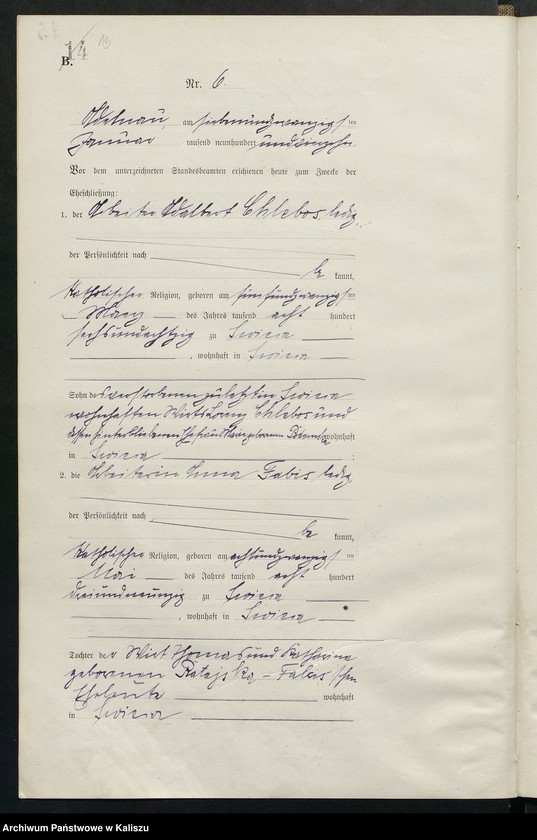 B.
14
Nr. 6.
Adelnau, am siebenundzwanzigsten
Januar tausend neunhundert und vierzehn.
Vor dem unterzeichneten Standesbeamten erschienen heute zum Zwecke der
Eheschließung:
1. der Arbeiter Adalbert Chlebos, ledig,
der Persönlichkeit nach
be kannt,
katholischer Religion, geboren am fünfundzwanzigsten
März des Jahres tausend acht hundert
sechsundachtzig zu
, wohnhaft in
Sohn des verstorbenen zuletzt in
wohnhaften Wirts Chlebos und
dessen hinterbliebenen Ehefrau geborenen wohnhaft
in
2. die Arbeiterin Anna Fabis, ledig
der Persönlichkeit nach
be kannt,
katholischer Religion, geboren am achtundzwanzigsten
Mai des Jahres tausend acht hundert
dreiundneunzig zu
, wohnhaft in
Tochter der Wirt Thomas und Katharina
geborenen Ratajska - Fabis'schen
Eheleute wohnhaft
in
Archiwum Państwowe w Kaliszu